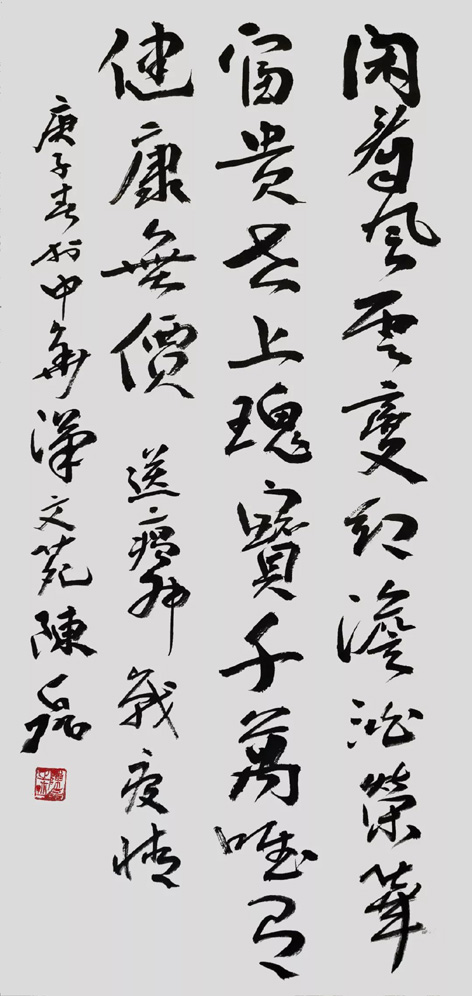 閑看風雲變幻澹泊榮華
富貴世上瑰寶千萬唯有
健康無價 送瘟神 戰疫情
庚子春於中華漢文苑陳磊